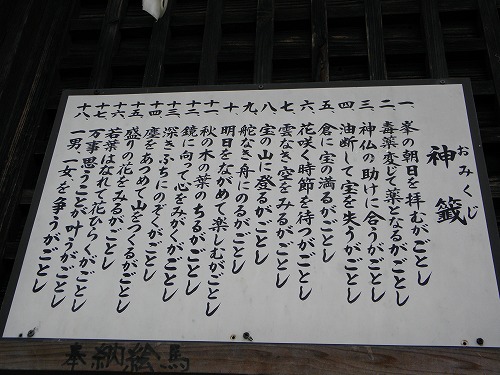 神籤
おみくじ
一、峯の朝日を拝むがごとし
二、毒薬変じて薬となるがごとし
三、神仏の助けに合うがごとし
四、油断して宝を失うがごとし
五、倉に宝の満るがごとし
六、花咲く時節を待つがごとし
七、雲なき空をみるがごとし
八、宝の山に登るがごとし
九、舵なき舟にのるがごとし
十、明日をながめて楽しむがごとし
十一、秋の木の葉のちるがごとし
十二、鏡に向って心をみがくがごとし
十三、深きふちにのぞくがごとし
十四、座をあつめて山をつくるがごとし
十五、盛りの花をみるがごとし
十六、若葉はなれて花ひらくがごとし
十七、万事思うことが叶うがごとし
十八、一男一女を争うがごとし
奉納絵馬